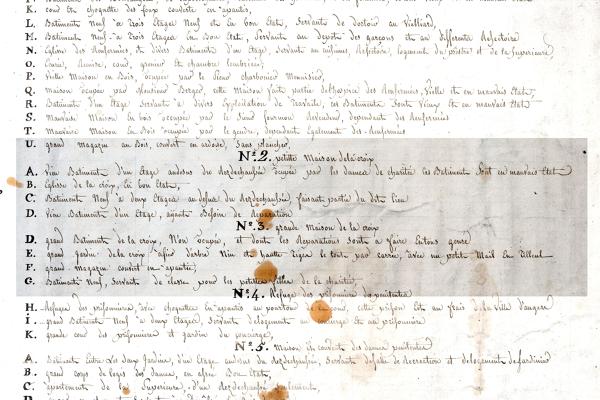 K. cond et choquette des fours couverts en apantis,
L. Batiment Neuf a trois Etages Neuf et En bon Etat, Servante de dortoir au Vieillard,
M. Batiment Neuf a trois Etages En Bon Etat, Servant au depot des garçons et au differents Refectoire
N. Eglise des Renfermés, et divers Batiments d'un Etage, Servant au infirmes, Refectoire, logement du prêtre et de la Superieure
O. Cave, Remise, grenier et chambre lambrisée,
P. Vielle Maison en Bois, occupée par le Sieur charbonier Menuisier,
Q. Maison occupée par Monsieur Berger, cette Maison fait partie de l'hospice des Renfermés, Vielle et en mauvais Etat,
R. Batiment d'un Etage Servante a divers Exploitation de travaile, ces Batiments Sont Vieux et en mauvais Etat
S. Mauvaise Maison en bois occupée par le Sieur fournion Revendeur, dependant des Renfermés
T. Mauvaise Maison en Bois occupée par le gendre, dependant Egalement des Renfermés
U. grand magazin au Bois, couvert en ardoise, Sans planches,
N.º 2. petitte Maison de la croix
A. Vieu Batiment d'un Etage audesus du Rezdechaussée occupée par les dames de charité ces Batiments Sont en mauvais Etat
B. Eglise de la croix, En bon Etat,
C. Batiment Neuf a deux Etages au desus du Rezdechaussée, faisant partie du dit lieu
D. Vieu Batiment d'un Etage, ayant Besoin de Reparation
N.º 3. grande Maison de la croix
D. grand Batiment de la croix, Non occupé, et dont les Reparations Sont a faire En tous genre
E. grand Jardin de la croix et tout par carré, avec un petit Mail En tilleul
F. grand magazin couvert en apantie,
G. Batiment Neuf, Servant de classe pour les petittes filles de la charité,
N.º 4. Refuge des prisonniere ou penitentes
H. Refuge des prisonniere, avec choquettes en apantis au pourtour de la cour, cette prison Est au frais de la Ville d'angers
I. grand Batiment Neuf a deux Etages, Servant de logement au concierge et au prisonniere
K. grande cour des prisonniere et jardin du concierge,
N.º 5. Maison et couvent des dames penitentes
A. Batiment Entre Les deux Jardins, d'un Etage audesus du Rezdechaussée, Servant de Salle de Recreation et de logement de Jardinier
B. grand corps de logis des dames, en assée Bon Etat,
C. apartement de la Superieure, d'un Rezdechaussée Seulement,